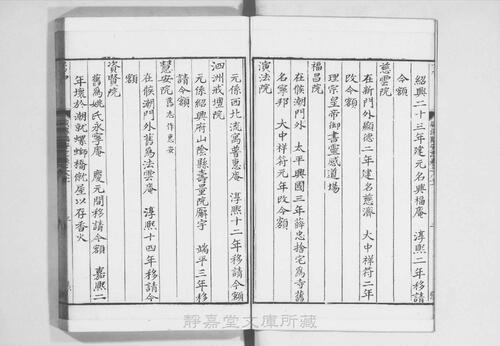 紹興二十三年建元名興福庵 淳熙二年移請
今額
慈雲院
在新門外顯德二年建名慈濟 大中祥符二年
改今額
理宗皇帝御書靈感道場
福昌院
在候潮門外 太平興國三年薛忠捨宅為寺舊
名寧邦 大中祥符元年改今額
演法院
元係西北流寓普惠庵 淳熙十二年移請今額
泗洲戒壇院
元係紹興府山陰縣壽量院廨宇 端平三年移
請今額
慧安院舊志作惠安
在候潮門外舊為法雲庵 淳熙十四年移請今
額
資賢院
舊為姚氏永寧庵 慶元間移請今額 嘉熙二
年壞於潮就螺螄橋僦屋以存香火
靜嘉堂文庫所藏